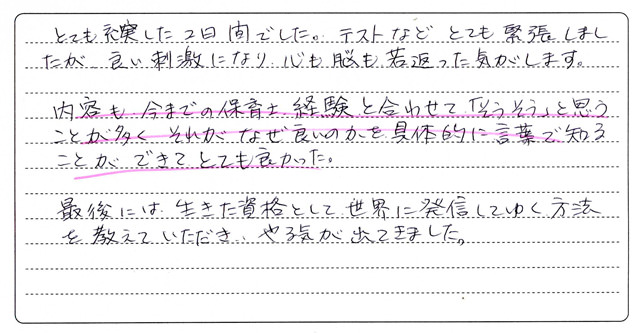 とても充実した2日間でした。テストなど とても緊張しまし
たが、良い刺激になり 心も脳も若返った気がします。
内容も 今までの保育士経験と合わせて「そうそう」と思う
ことが多く それが なぜ良いのかを具体的に言葉で知る
ことが できて とても良かった。
最後には 生きた資格として世界に発信してゆく方法
を教えていただき、やる気が出てきました。